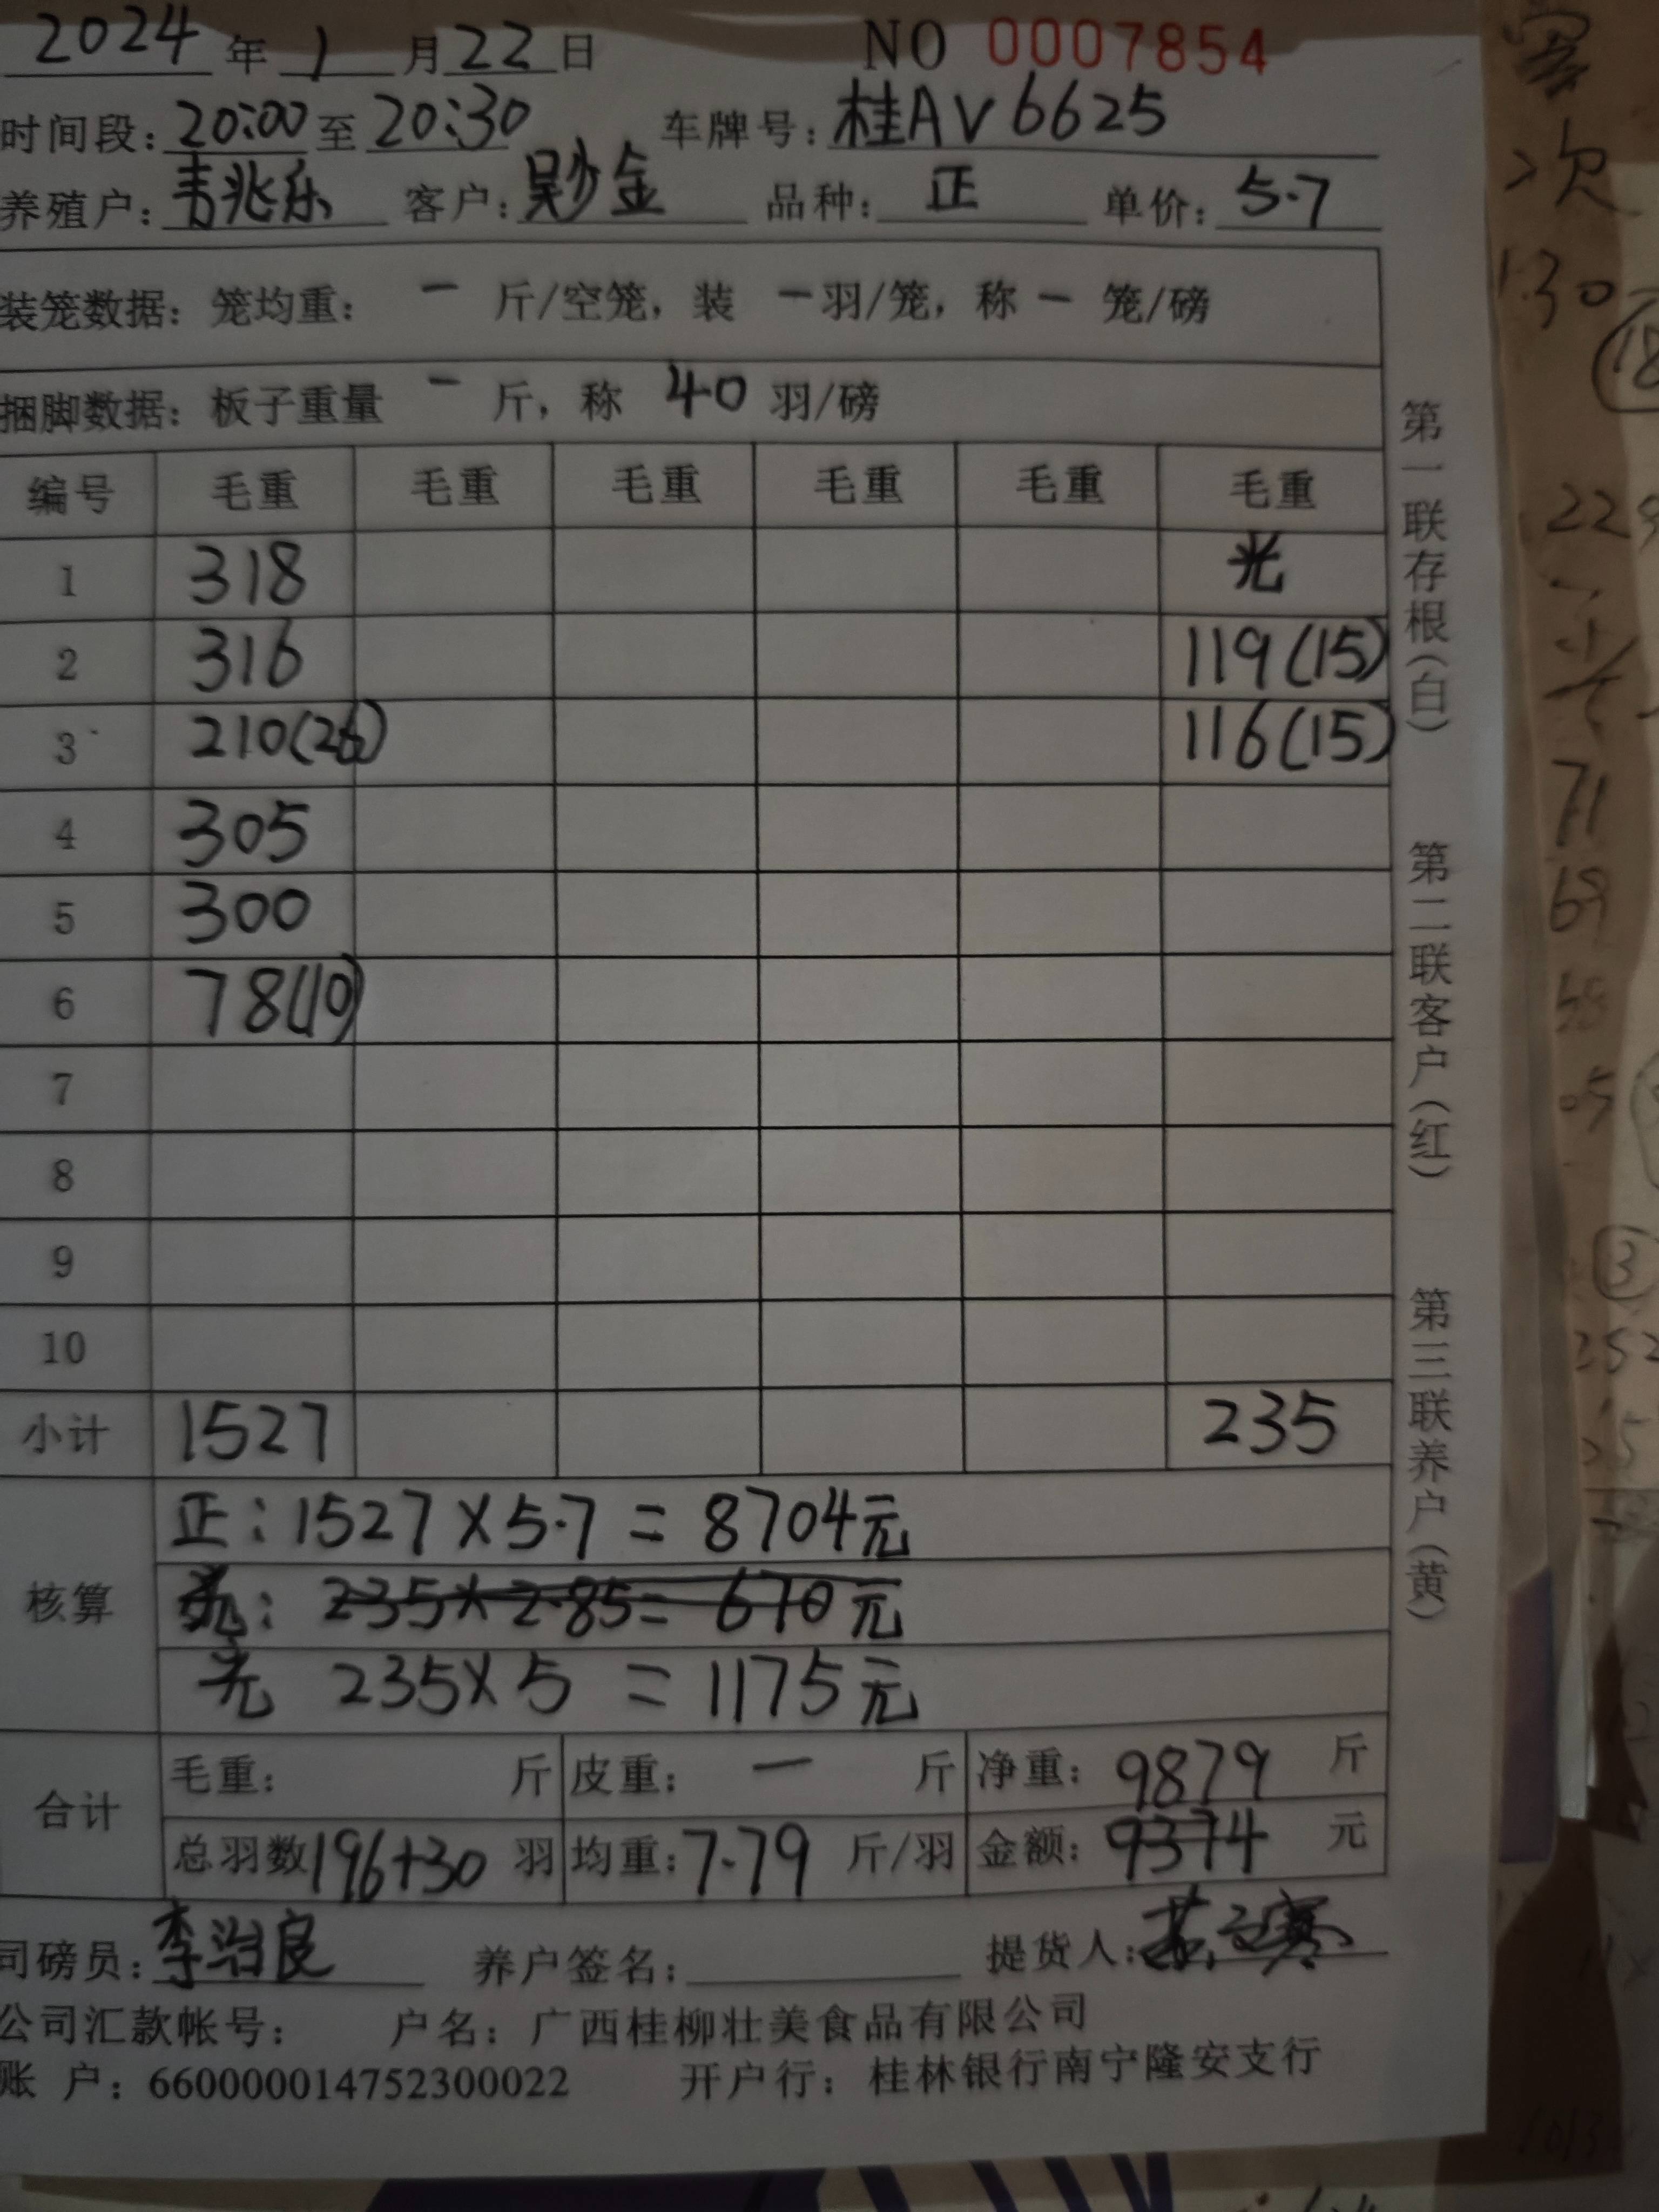 2024 年 1 月 22 日 NO 0007854
时间段: 20:00 至 20:30 车牌号: 桂AV6625
养殖户: 韦兆乐 客户: 吴少金 品种: 正 单价: 5.7
装笼数据: 笼均重: 一 斤/空笼, 装 一 羽/笼, 称 一 笼/磅
捆脚数据: 板子重量 一 斤, 称 40 羽/磅
编号 毛重 毛重 毛重 毛重 毛重 毛重
1 318 光
2 316 119(15)
3 210(26) 116(15)
4 305
5 300
6 78(10)
7
8
9
10
小计 1527 235
核算
正: 1527×5.7=8704元
光: 235×2.85=670元
光 235×5=1175元
合计
毛重: 斤 皮重: 一 斤 净重: 9879 斤
总羽数 196+30 羽 均重: 7.79 斤/羽 金额: 9374 元
司磅员: 李治良 养户签名: 提货人:
公司汇款帐号: 户名: 广西桂柳壮美食品有限公司
账 户: 660000014752300022 开户行: 桂林银行南宁隆安支行
第一联存根(白) 第二联客户(红) 第三联养户(黄)
次
1.30
18
71
69
3
252